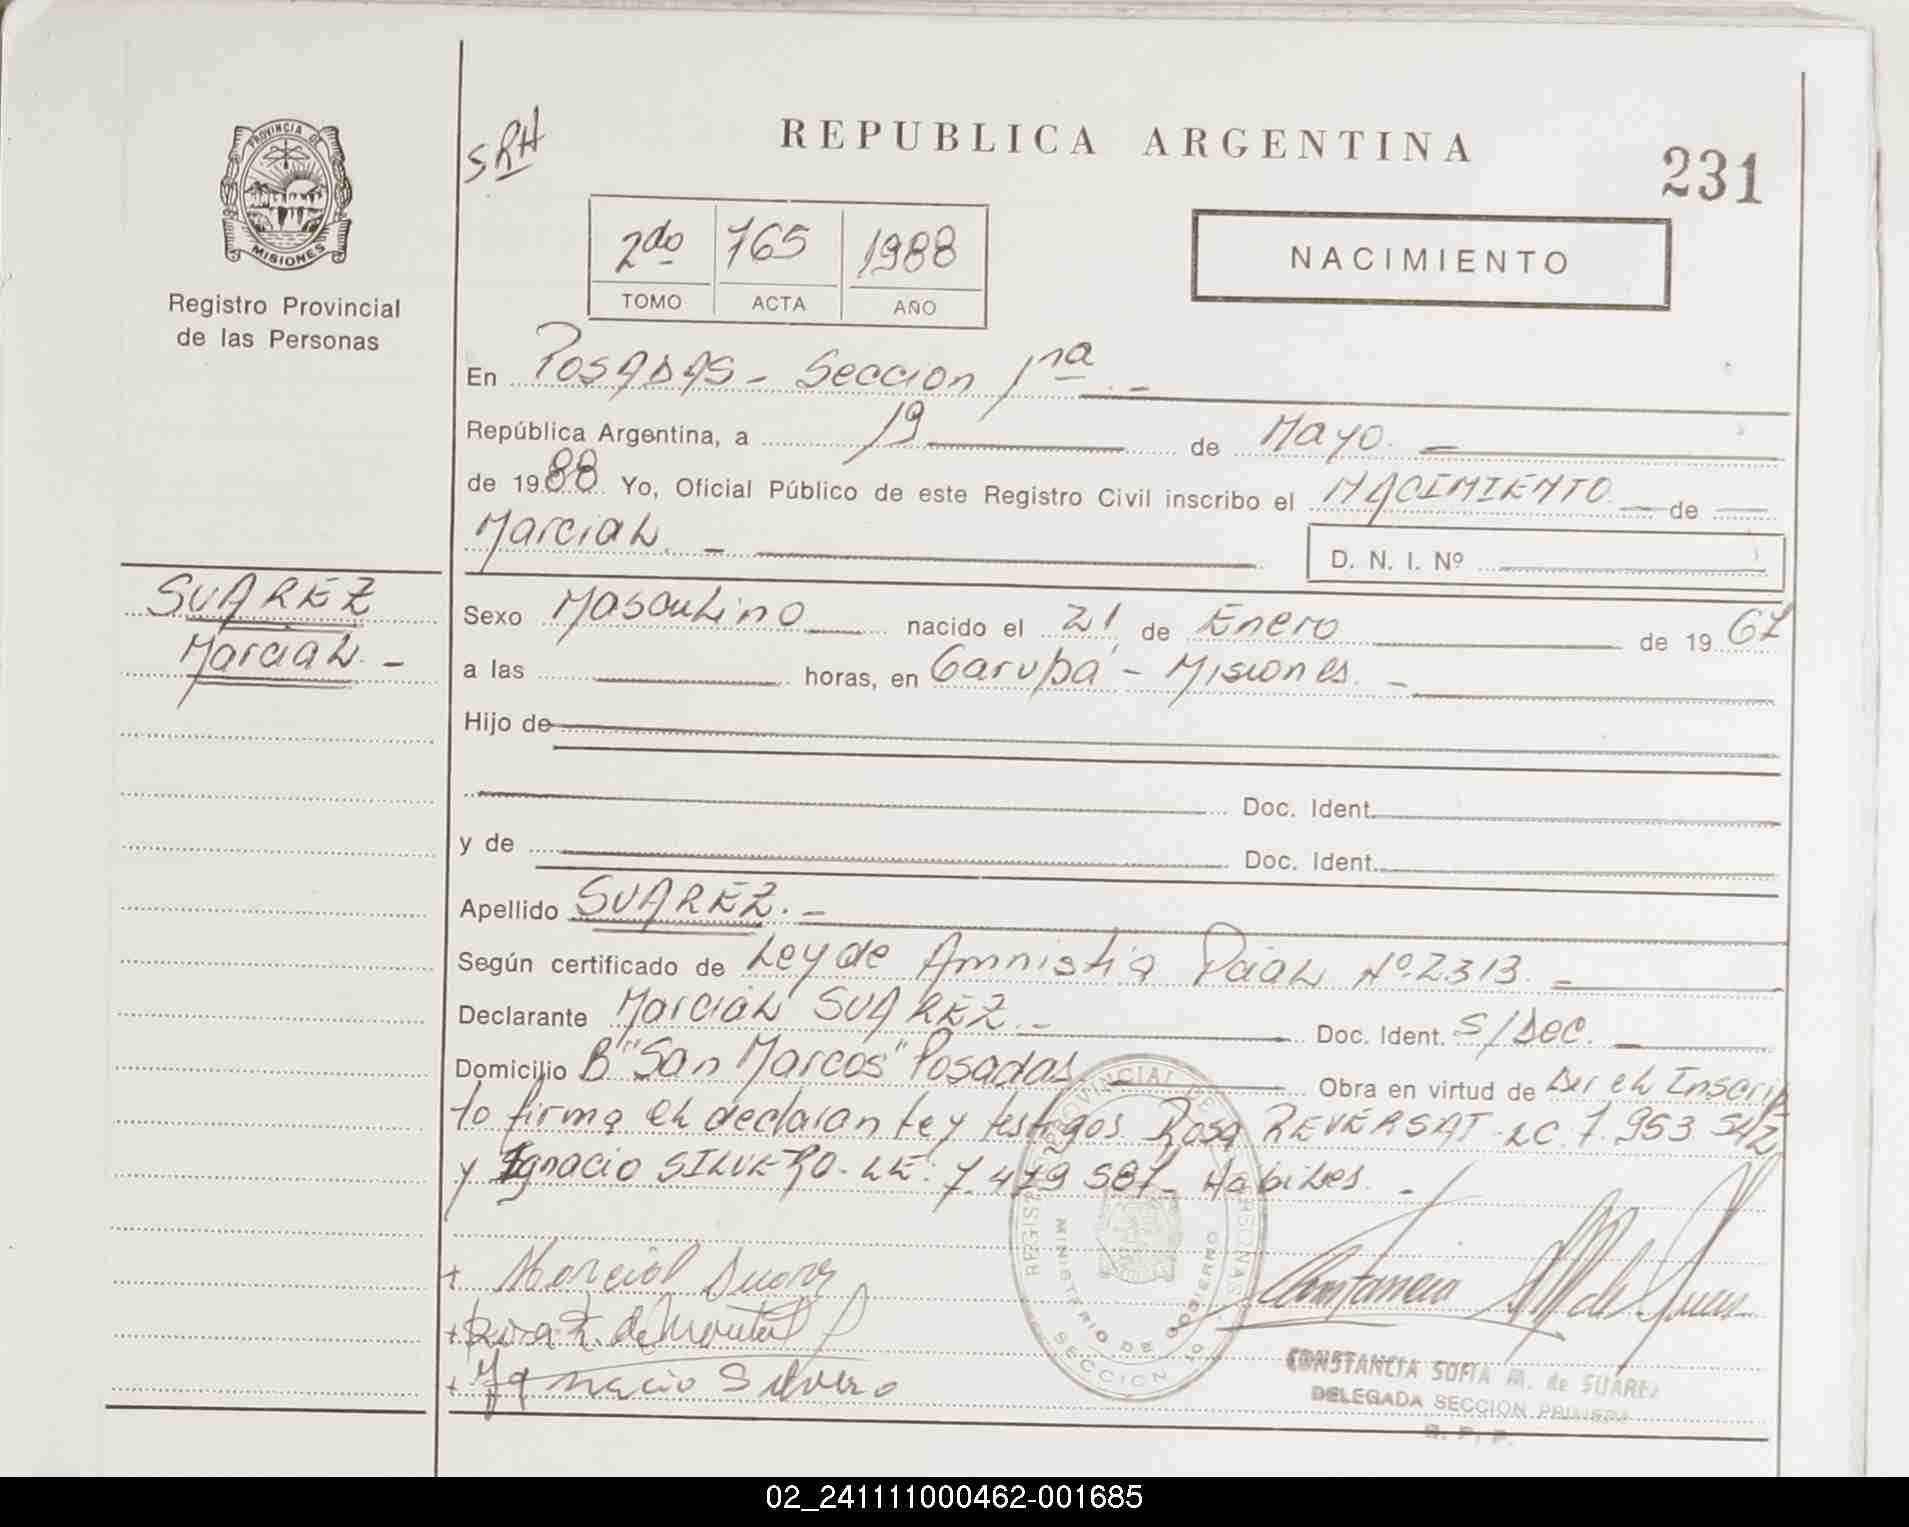 PROVINCIA DE
MISIONES
Registro Provincial
de las Personas
SUAREZ
Marcial. -
SRH
REPUBLICA ARGENTINA
231
2do 765 1988
TOMO ACTA AÑO
NACIMIENTO
En POSADAS - Seccion 1ra. -
República Argentina, a 19 de Mayo. -
de 1988 Yo, Oficial Público de este Registro Civil inscribo el NACIMIENTO de
Marcial. -
D. N. I. Nº
Sexo Masculino nacido el 21 de Enero de 1967
a las horas, en Garupá - Misiones. -
Hijo de
Doc. Ident.
y de Doc. Ident.
Apellido SUAREZ. -
Según certificado de Ley de Amnistia Pcial Nº 2313. -
Declarante Marcial SUAREZ. - Doc. Ident. S/Doc. -
Domicilio Bº "San Marcos" Posadas. Obra en virtud de Ser el Inscrip
to firma el declarante y testigos Rosa REVERSAT LC. 7.953.542
y Ignacio SILVERO - LE: 7.479.587 - Habiles. -
+ Marcial Suarez
+ Rosa R. de
+ Ygnacio Silvero
REGISTRO PROVINCIAL DE LAS PERSONAS
MINISTERIO DE GOBIERNO
SECCION 1ª
Constancia SM de Suarez
CONSTANCIA SOFIA M. de SUAREZ
DELEGADA SECCION PRIMERA
R. P. P.
02_241111000462-001685